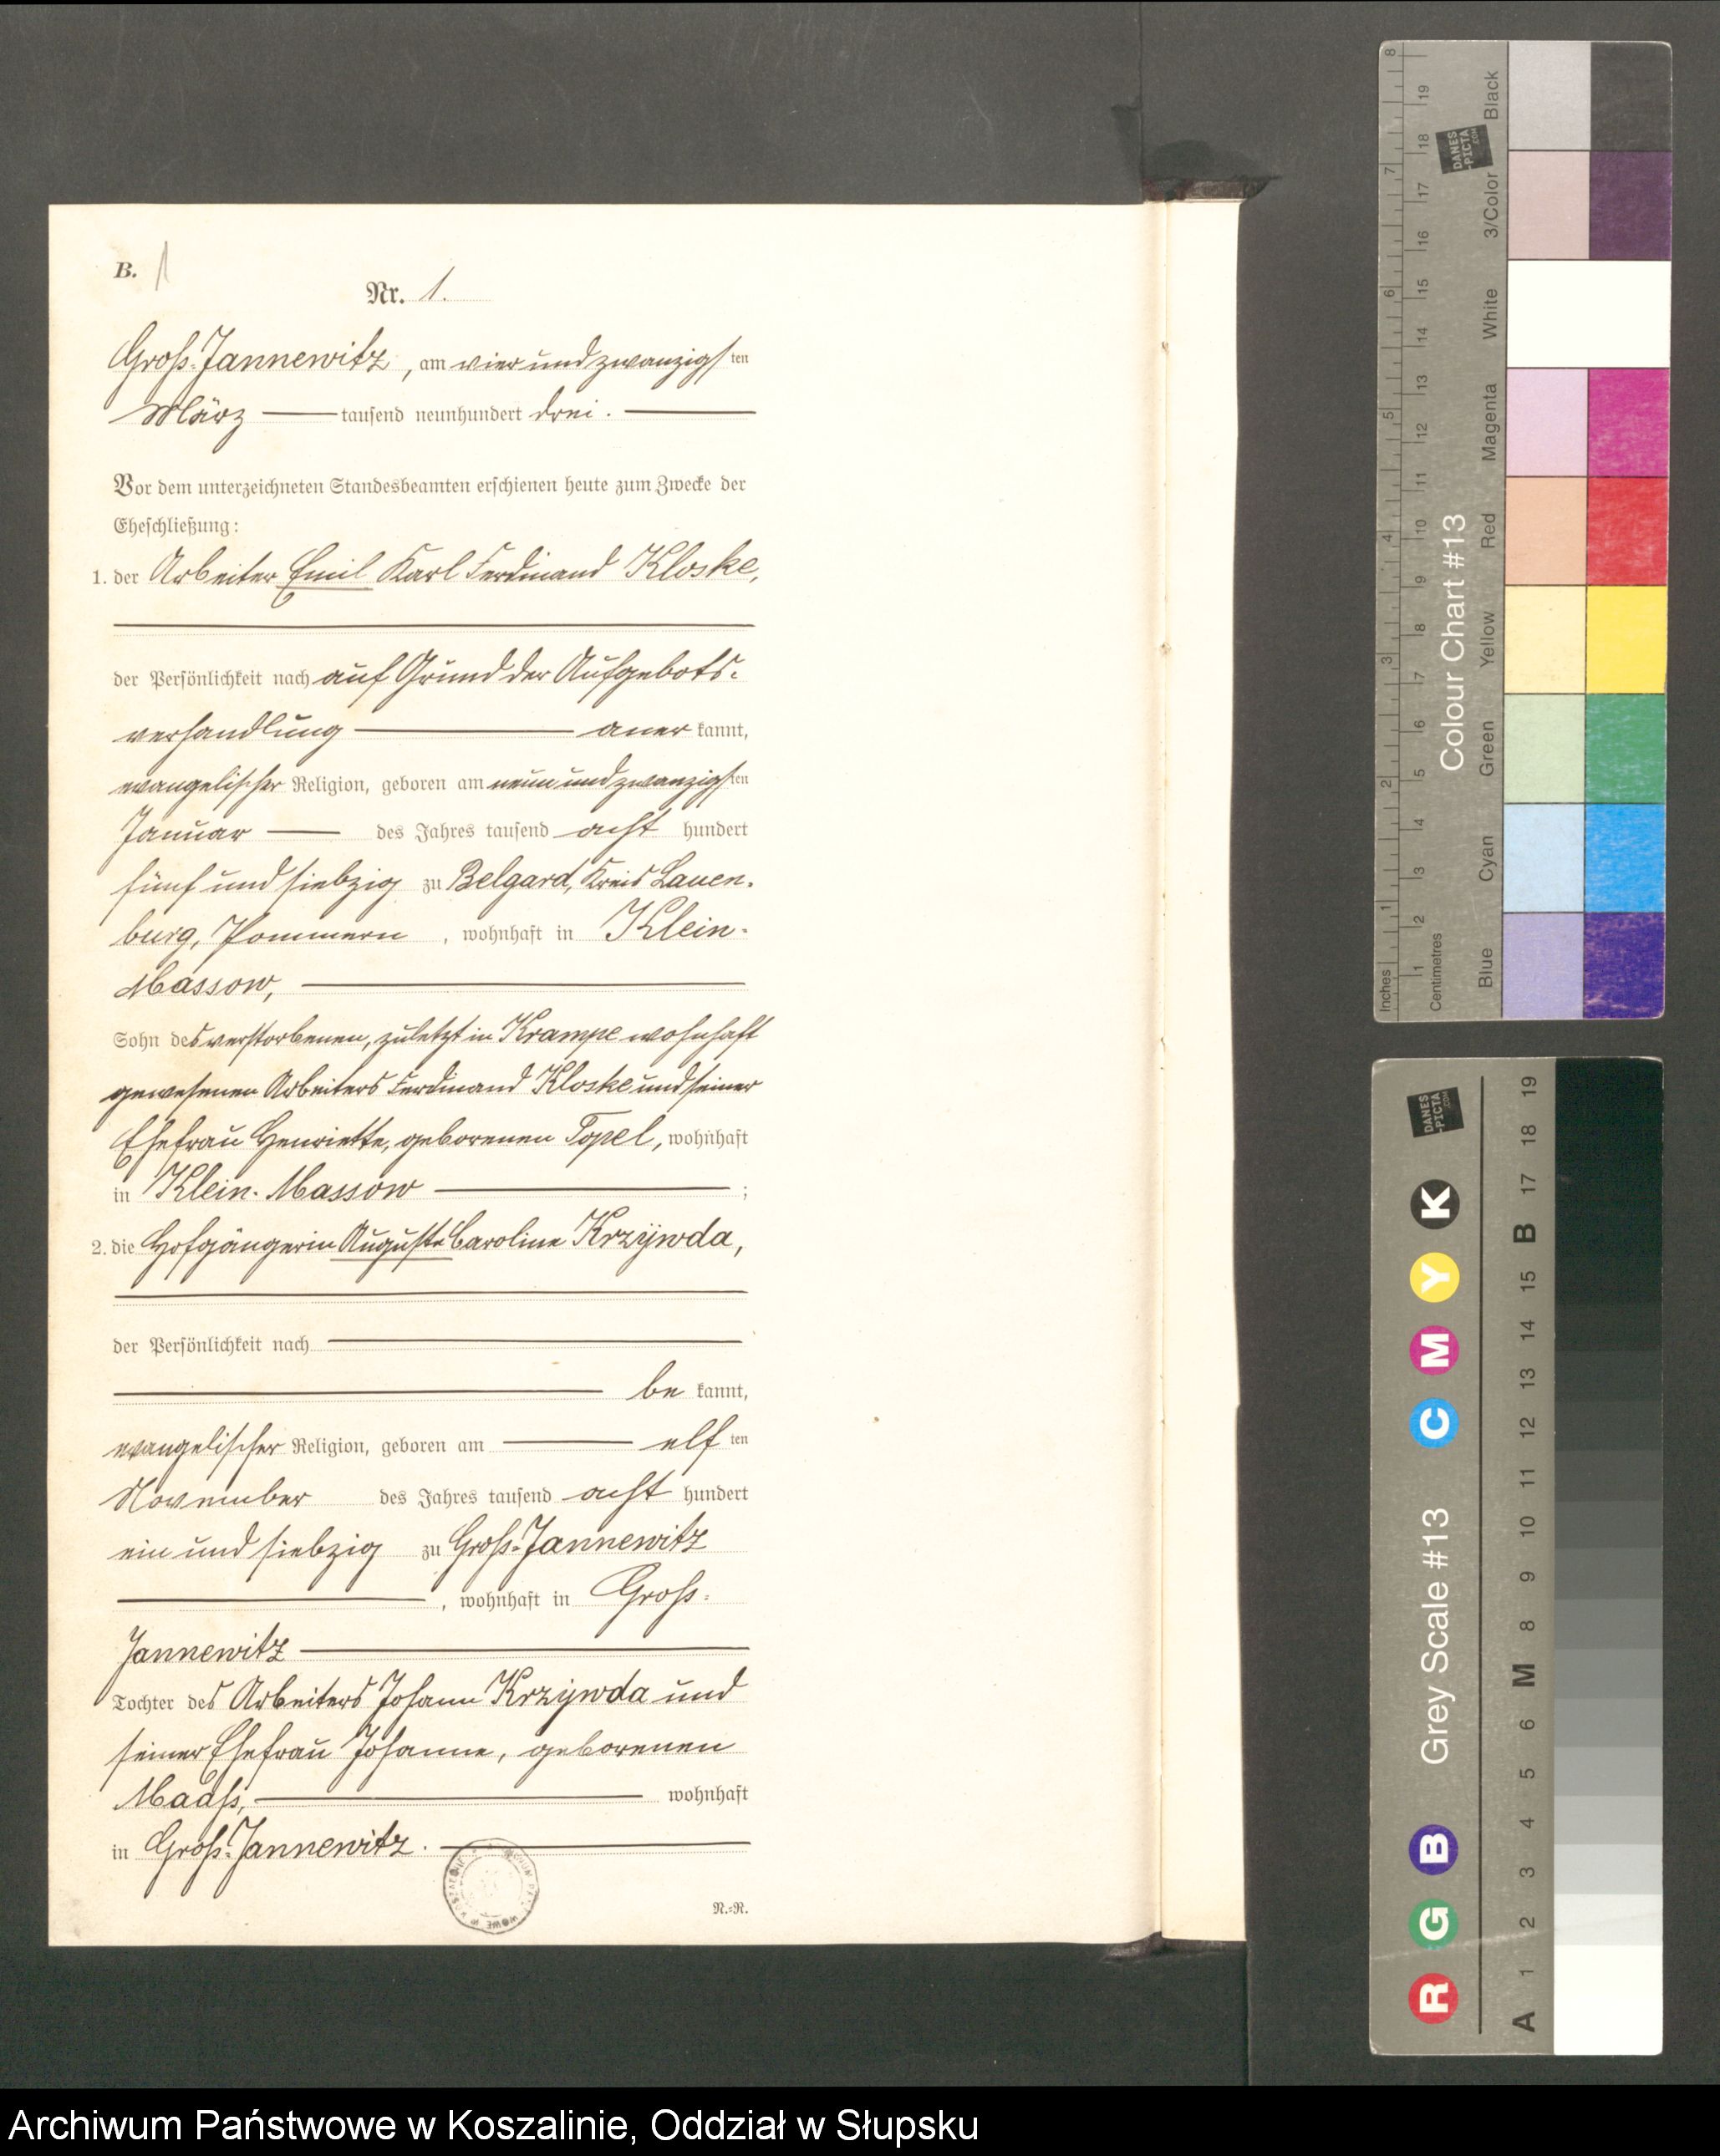 B. 1
Nr. 1.
Groß-Jannewitz, am vier und zwanzigsten
März tausend neunhundert drei.
Vor dem unterzeichneten Standesbeamten erschienen heute zum Zwecke der
Eheschließung:
1. der Arbeiter Emil Karl Ferdinand Kloske,
der Persönlichkeit nach auf Grund der Aufgebots-
verhandlung anerkannt,
evangelischer Religion, geboren am neun und zwanzigsten
Januar des Jahres tausend acht hundert
fünf und siebzig zu Belgard, Kreis Lauen-
burg, Pommern, wohnhaft in Klein-
Massow,
Sohn des verstorbenen, zuletzt in Krampe wohnhaft
gewesenen Arbeiters Ferdinand Kloske und seiner
Ehefrau Henriette, geborenen Topel, wohnhaft
in Klein-Massow;
2. die Hofgängerin Auguste Caroline Krzywda,
der Persönlichkeit nach
bekannt,
evangelischer Religion, geboren am elften
November des Jahres tausend acht hundert
ein und siebzig zu Groß-Jannewitz
, wohnhaft in Groß-
Jannewitz
Tochter des Arbeiters Johann Krzywda und
seiner Ehefrau Johanne, geborenen
Maaß, wohnhaft
in Groß-Jannewitz.
N.-R.
Inches 1 2 3 4 5 6 7 8
Centimetres 1 2 3 4 5 6 7 8 9 10 11 12 13 14 15 16 17 18 19
Colour Chart #13
Blue Cyan Green Yellow Red Magenta White 3/Color Black
DANES-PICTA.COM
Grey Scale #13
R G B C M Y K
A 1 2 3 4 5 6 M 8 9 10 11 12 13 14 15 B 17 18 19
DANES-PICTA.COM
Archiwum Państwowe w Koszalinie, Oddział w Słupsku